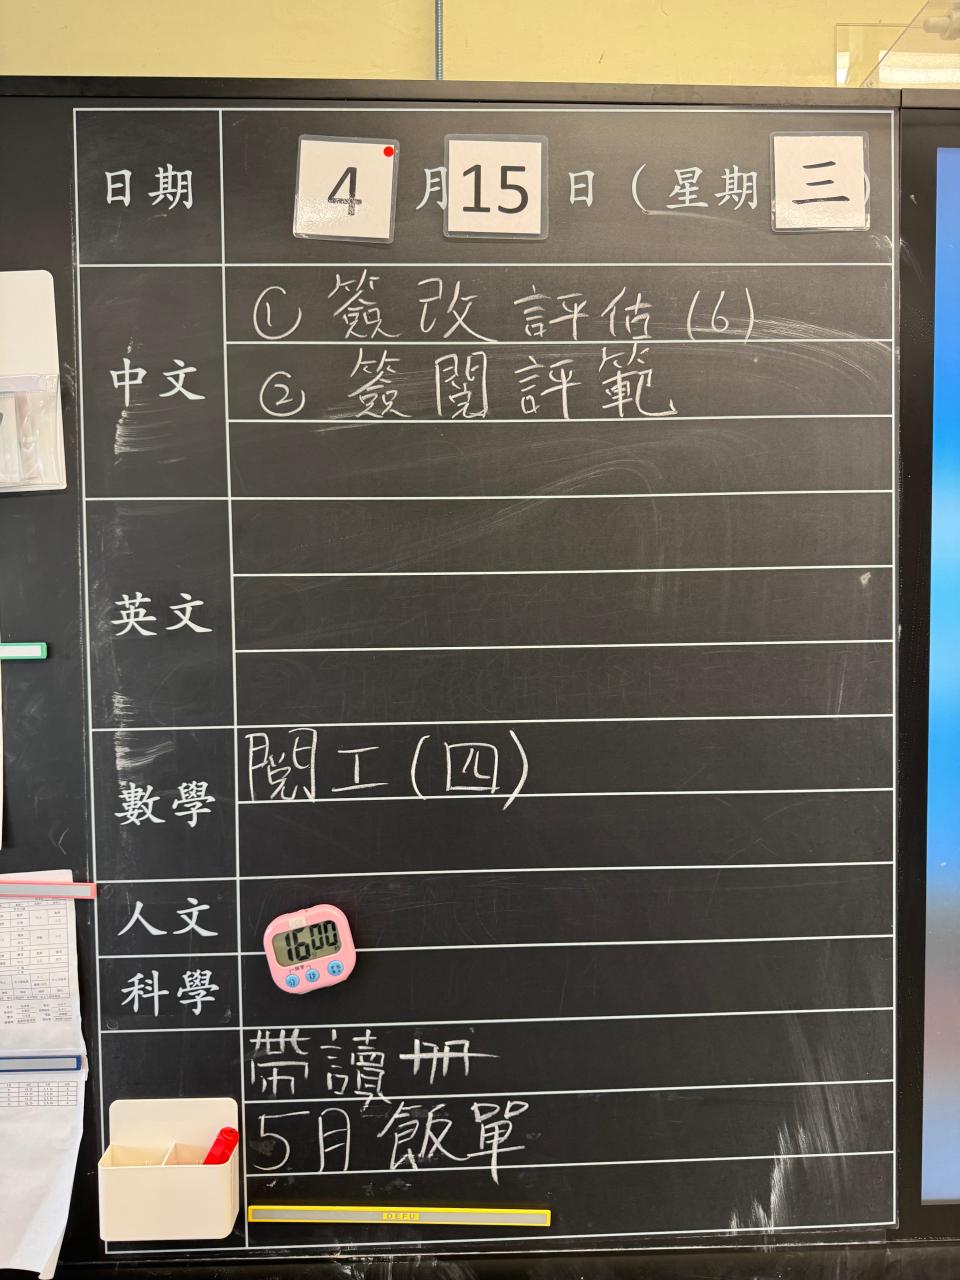 日期 4月15日(星期三)
中文
①簽改評估(6)
②簽閱評範
英文
數學
閱工(四)
人文
科學
1600
帶讀冊
5月飯單
DEFU